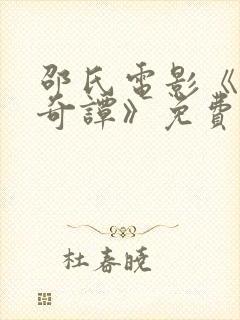 邵氏電影《
奇譚》免費
杜春曉